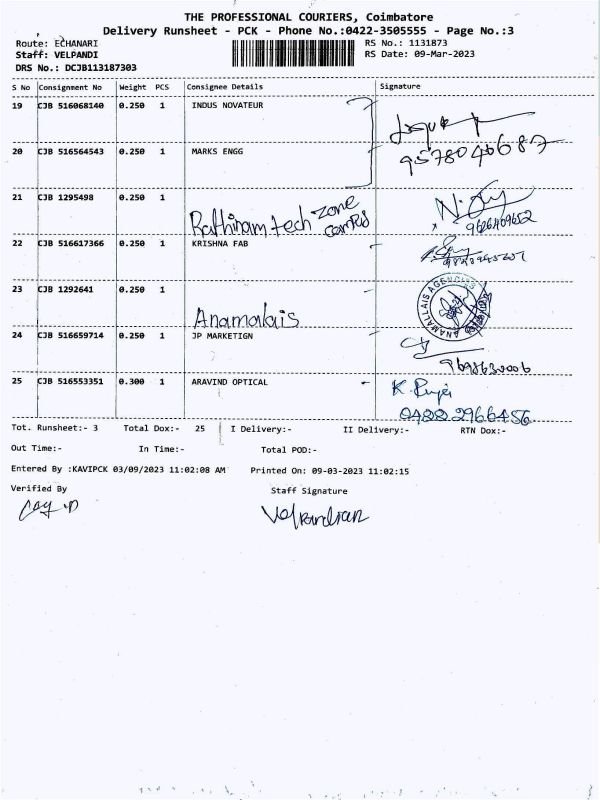 THE PROFESSIONAL COURIERS, Coimbatore
Delivery Runsheet - PCK - Phone No.:0422-3505555 - Page No.:3
Route: ECHANARI
RS No.: 1131873
Staff: VELPANDI
RS Date: 09-Mar-2023
DRS No.: DCJB113187303
S No Consignment No Weight PCS Consignee Details Signature
19 CJB 516068140 0.250 1 INDUS NOVATEUR
20 CJB 516564543 0.250 1 MARKS ENGG
21 CJB 1295498 0.250 1
Rathinam tech zone campus
9626409652
22 CJB 516617366 0.250 1 KRISHNA FAB
23 CJB 1292641 0.250 1
Anamalais
ANAMALLAIS AGENCIES
24 CJB 516659714 0.250 1 JP MARKETIGN
25 CJB 516553351 0.300 1 ARAVIND OPTICAL
0422 2966456
Tot. Runsheet:- 3 Total Dox:- 25 I Delivery:- II Delivery:- RTN Dox:-
Out Time:- In Time:- Total POD:-
Entered By :KAVIPCK 03/09/2023 11:02:08 AM Printed On: 09-03-2023 11:02:15
Verified By Staff Signature
Velpandian